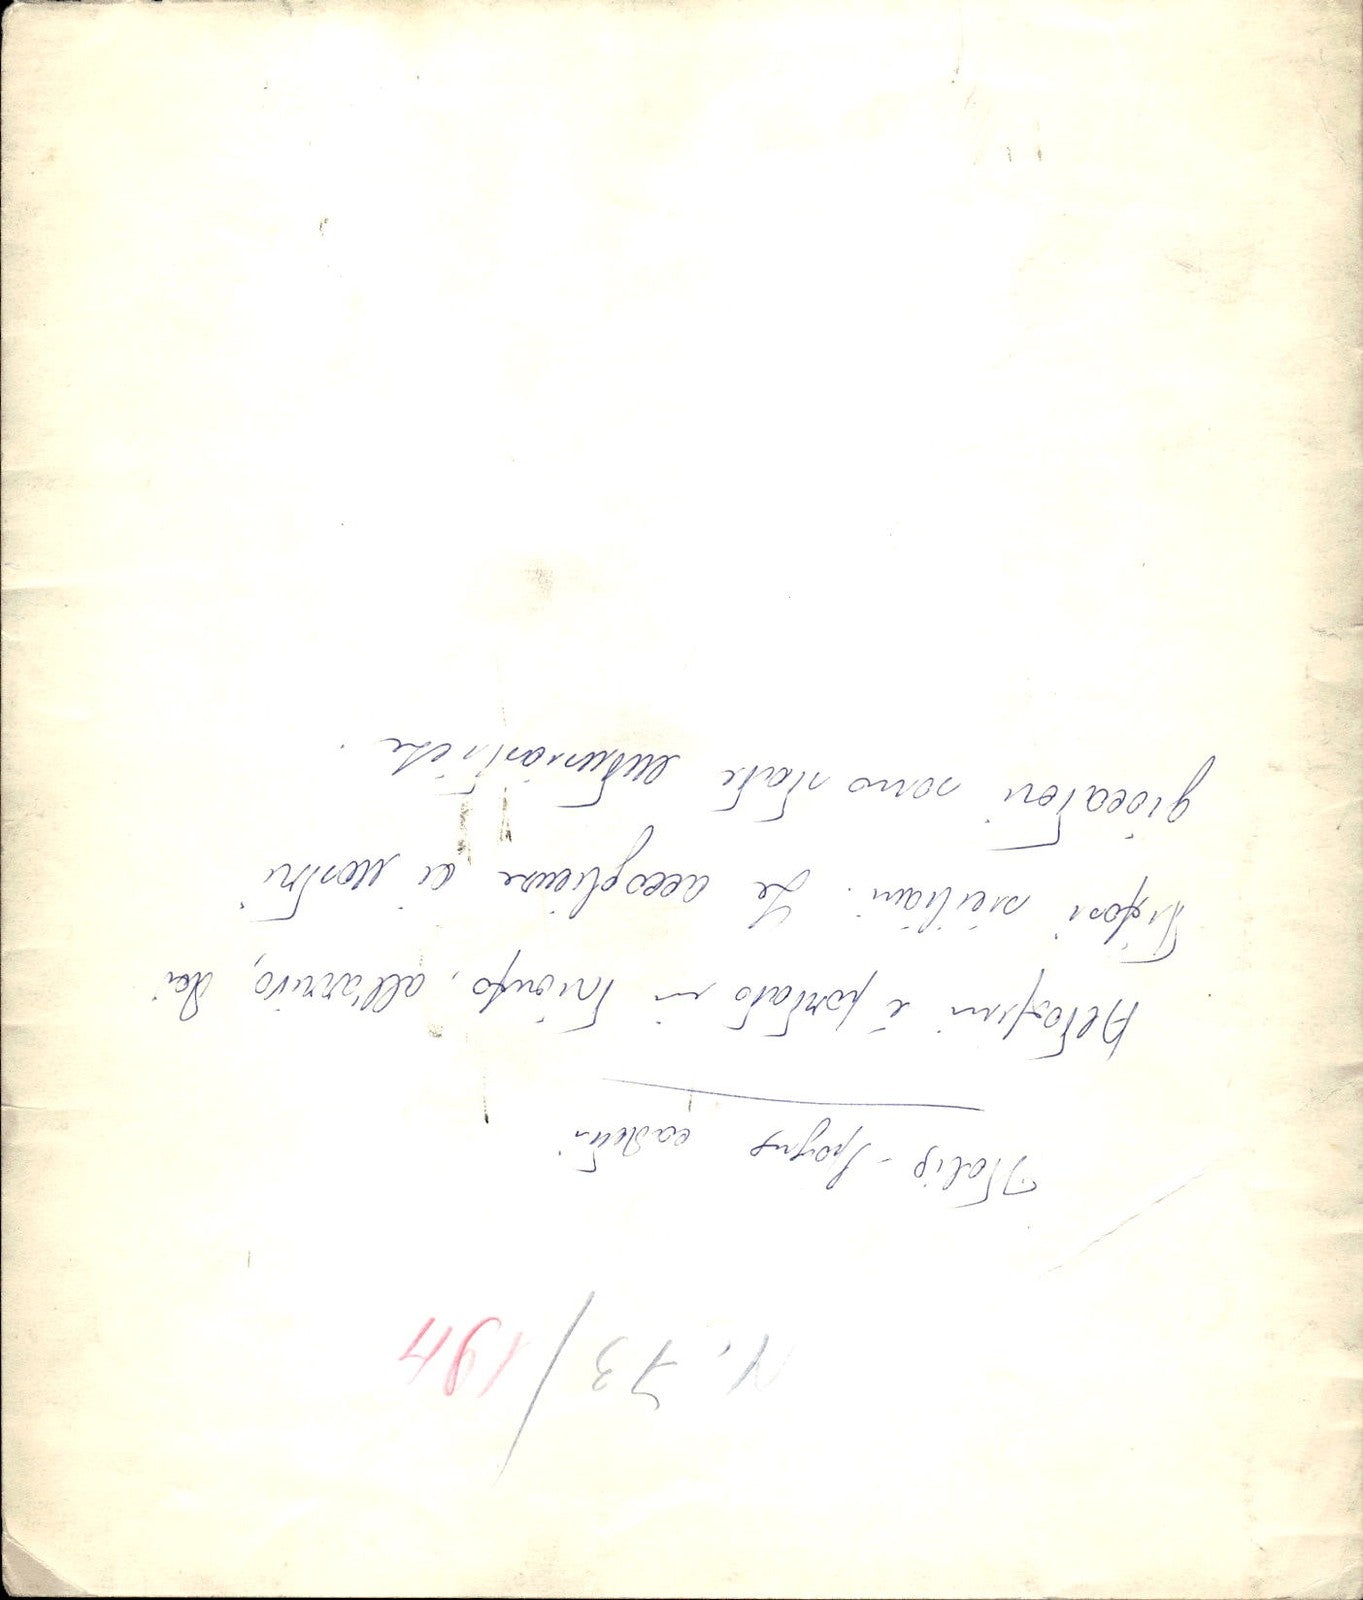 N. 73/194
Italia - Spagna cadetti
Altafini è portato in trionfo, all'arrivo, dai
tifosi siciliani. Le accoglienze ai nostri
giocatori sono state entusiastiche.